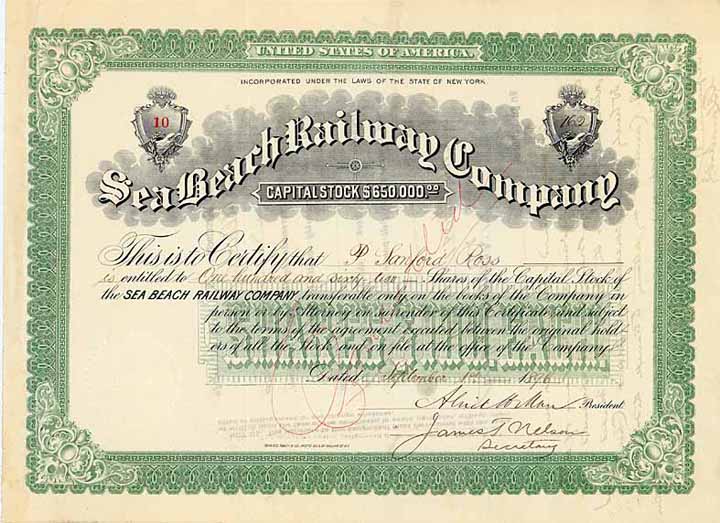 UNITED STATES OF AMERICA.
INCORPORATED UNDER THE LAWS OF THE STATE OF NEW YORK.
10
162
Sea Beach Railway Company
CAPITAL STOCK $650,000.00
This is to Certify that P Sanford Ross
is entitled to One hundred and sixty two Shares of the Capital Stock of
the SEA BEACH RAILWAY COMPANY, transferable only on the books of the Company in
person or by Attorney on surrender of this Certificate and subject
to the terms of the agreement executed between the original hold-
ers of all the Stock and on file at the office of the Company.
Dated September 1896
President.
James T. Nelson
Secretary